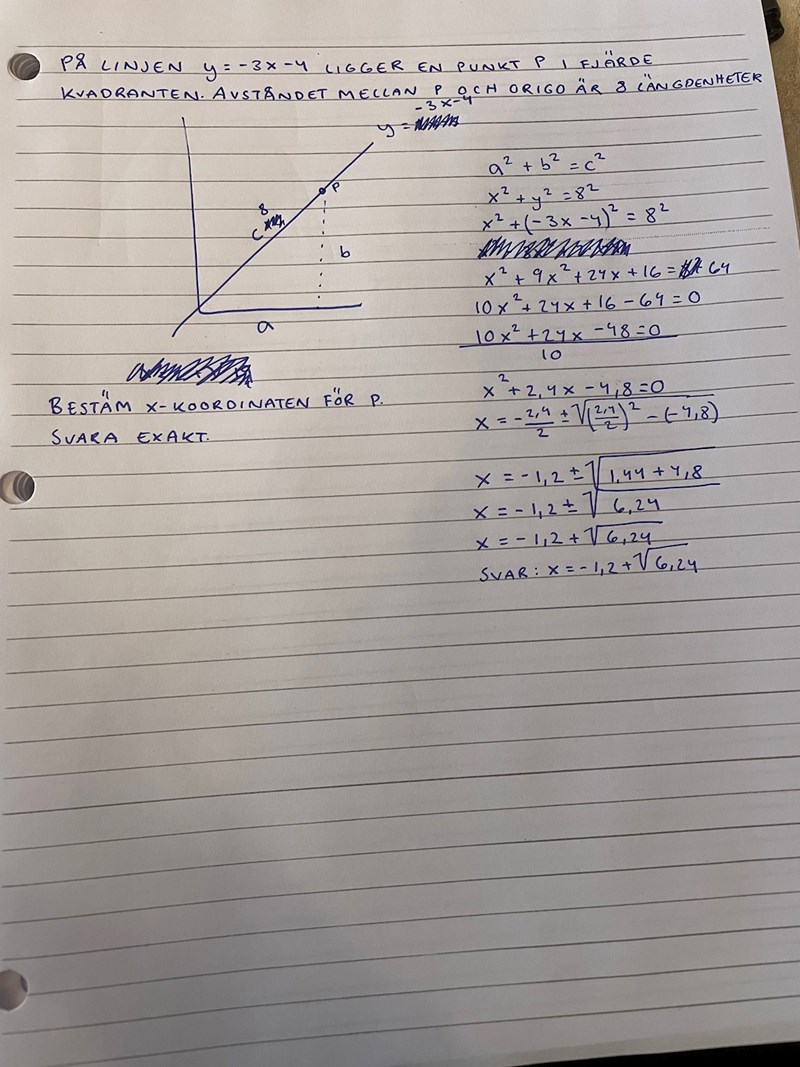 PÅ LINJEN y = -3x-4 LIGGER EN PUNKT P I FJÄRDE
KVADRANTEN. AVSTÅNDET MELLAN P OCH ORIGO ÄR 8 LÄNGDENHETER
y = -3x-4
P
8
C
b
a
BESTÄM X-KOORDINATEN FÖR P.
SVARA EXAKT.
a² + b² = c²
x² + y² = 8²
x² + (-3x-4)² = 8²
x² + 9x² + 24x + 16 = 64
10x² + 24x + 16 - 64 = 0
10x² + 24x - 48 = 0
10
x² + 2,4x - 4,8 = 0
x = -2,4/2 ± √(2,4/2)² - (-4,8)
x = -1,2 ± √1,44 + 4,8
x = -1,2 ± √6,24
x = -1,2 + √6,24
SVAR: x = -1,2 + √6,24